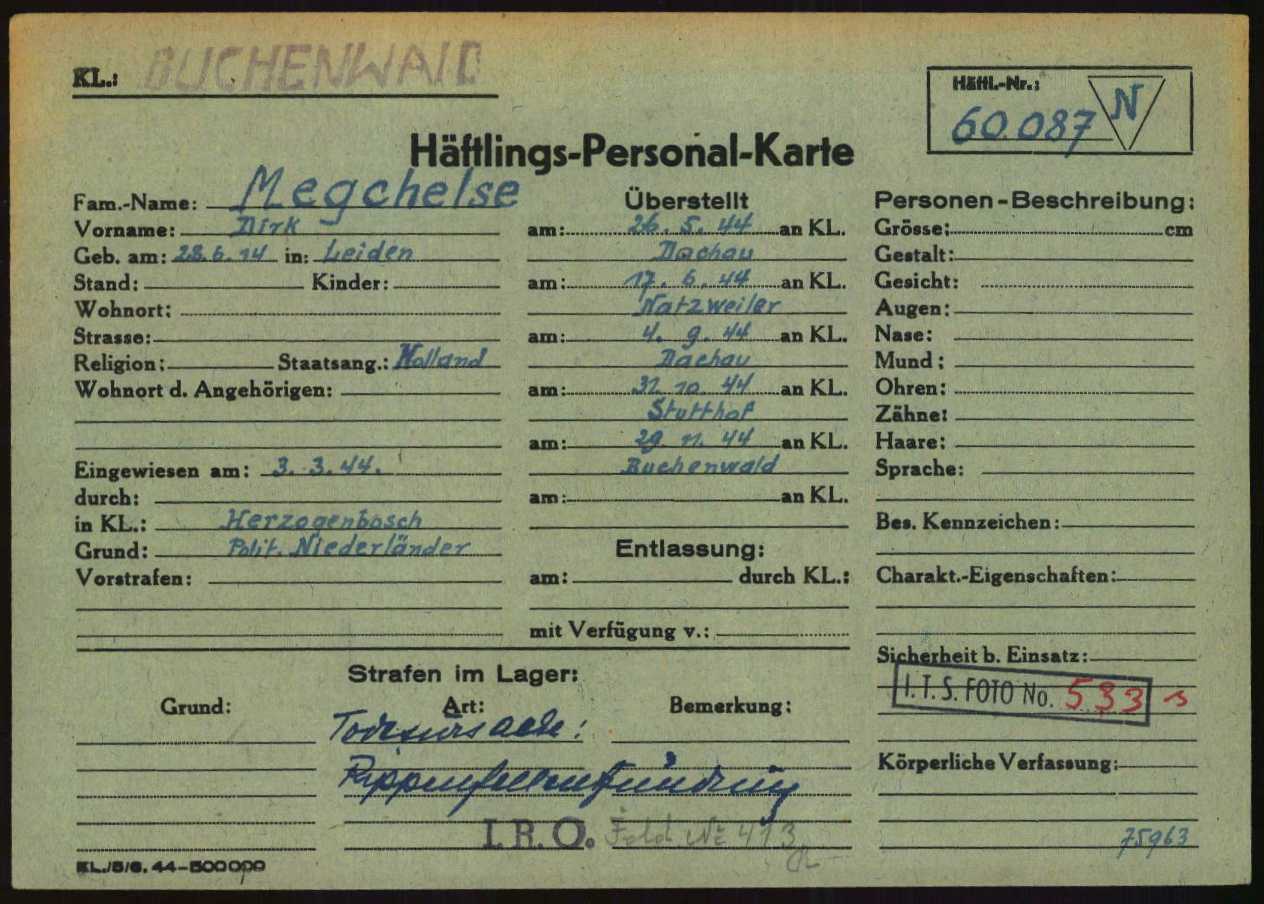 KL.: BUCHENWALD
Häftl.-Nr.:
60.087 N
Häftlings-Personal-Karte
Fam.-Name: Megchelse
Vorname: Dirk
Geb. am: 28.6.14 in: Leiden
Stand: Kinder:
Wohnort:
Strasse:
Religion: Staatsang.: Holland
Wohnort d. Angehörigen:
Eingewiesen am: 3.3.44.
durch:
in KL.: Herzogenbosch
Grund: Polit. Niederländer
Vorstrafen:
Überstellt
am: 26.5.44 an KL.
Dachau
am: 17.6.44 an KL.
Natzweiler
am: 4.9.44 an KL.
Dachau
am: 31.10.44 an KL.
Stutthof
am: 29 11.44 an KL.
Buchenwald
am: an KL.
Entlassung:
am: durch KL.:
mit Verfügung v.:
Personen-Beschreibung:
Grösse: cm
Gestalt:
Gesicht:
Augen:
Nase:
Mund:
Ohren:
Zähne:
Haare:
Sprache:
Bes. Kennzeichen:
Charakt.-Eigenschaften:
Sicherheit b. Einsatz:
I.T.S. FOTO No. 533
Körperliche Verfassung:
75963
Strafen im Lager:
Grund: Art: Bemerkung:
Todesursache:
Rippenfellentzündung
I.R.O. Fold. № 413
KL./5/6.44-500000